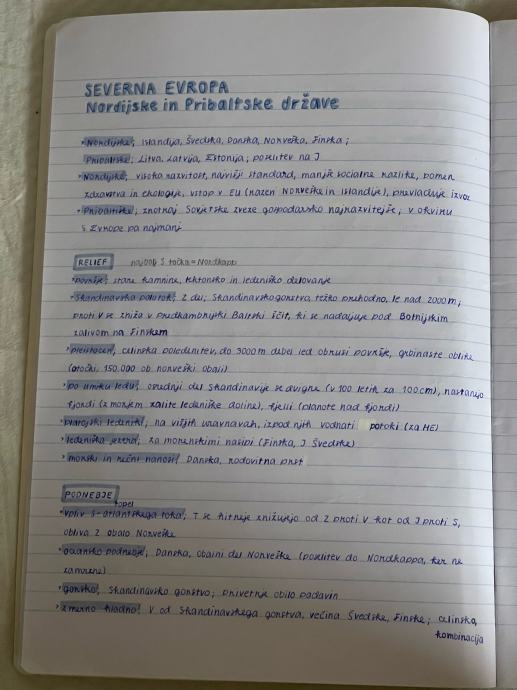 SEVERNA EVROPA
Nordijske in Pribaltske države
• Nordijske; Islandija, Švedska, Danska, Norveška, Finska;
Pribaltske; Litva, Latvija, Estonija; poselitev na J
• Nordijske; visoka razvitost, najvišji standard, manjše socialne razlike, pomen
zdravstva in ekologije, vstop v EU (razen Norveške in Islandije), prevladuje izvoz
• Pribaltiške; znotraj Sovjetske zveze gospodarsko najrazvitejše, v okviru
S Evrope pa najmanj
RELIEF najbolj S točka = Nordkapp
• površje; stare kamnine, tektonsko in ledeniško delovanje
• Skandinavski polotok; 2 dela; Skandinavsko gorstvo težko prehodno, le nad 2000m;
proti V se zniža v predkambrijski Baltski ščit, ki se nadaljuje pod Botnijskim
zalivom na Finskem
• pleistocen; celinska poledenitev, do 3000m debel led obrusi površje, grbinaste oblike
(otočki, 150.000 ob norveški obali)
• po umiku ledu; osrednji del Skandinavije se dvigne (v 100 letih za 100cm), nastanejo
fjordi (z morjem zalite ledeniške doline), fjelli (planote nad fjordi)
• platojski ledeniki; na višjih uravnavah, izpod njih vodnati potoki (za HE)
• ledeniška jezera; za morenskimi nasipi (Finska, J Švedske)
• morski in rečni nanosi; Danska, rodovitna prst
PODNEBJE
topel
• vpliv S-atlantskega toka; T se hitreje znižujejo od Z proti V kot od J proti S,
obliva Z obalo Norveške
• oceansko podnebje; Danska, obalni del Norveške (poselitev do Nordkappa, ker ne
zamrzne)
• gorsko; Skandinavsko gorstvo; privetrne obilo padavin
• zmerno hladno; V od Skandinavskega gorstva, večina Švedske, Finske; celinska,
kombinacija